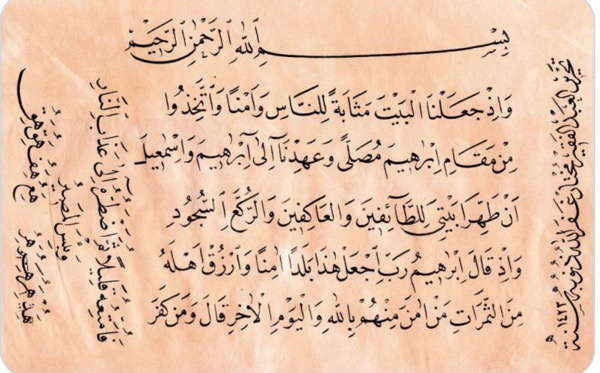 بِسْمِ ٱللّٰهِ ٱلرَّحْمٰنِ ٱلرَّحِيْمِ
وَاِذْ جَعَلْنَا الْبَيْتَ مَثَابَةً لِلنَّاسِ وَاَمْنًا وَاتَّخِذُوا
مِنْ مَقَامِ اِبْرٰهِيمَ مُصَلًّى وَعَهِدْنَٓا اِلٰٓى اِبْرٰهِيمَ وَاِسْمٰعِيلَ
اَنْ طَهِّرَا بَيْتِىَ لِلطَّٓائِفِينَ وَالْعَاكِفِينَ وَالرُّكَّعِ السُّجُودِ
وَاِذْ قَالَ اِبْرٰهِيمُ رَبِّ اجْعَلْ هٰذَا بَلَدًا اٰمِنًا وَارْزُقْ اَهْلَهُ
مِنَ الثَّمَرَاتِ مَنْ اٰمَنَ مِنْهُمْ بِاللّٰهِ وَالْيَوْمِ الْاٰخِرِ قَالَ وَمَنْ كَفَرَ
فَاُمَتِّعُهُ قَلِيلًا ثُمَّ اَضْطَرُّهُ اِلٰى عَذَابِ النَّارِ
وَبِئْسَ الْمَصِيرُ
العبد الفقير مختار غفر الله ذنوبه سنة ١٤٢٣